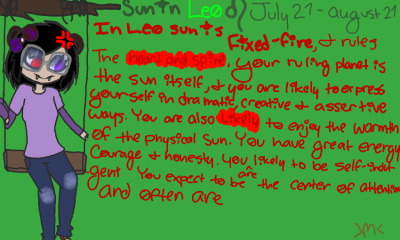 Sun in Leo ♌ July 21 - august 21
In Leo sun is Fixed-fire, & rules
The heart and spine, your ruling planet is
the sun itself, & you are likely to express
yourself in dramatic, creative & assertive
ways. You are also Likely to enjoy the warmth
of the physical Sun. You have great energy
Courage & honesty. You likely to be self-indul
gent You expect to be are the center of attention
and often are
JMC